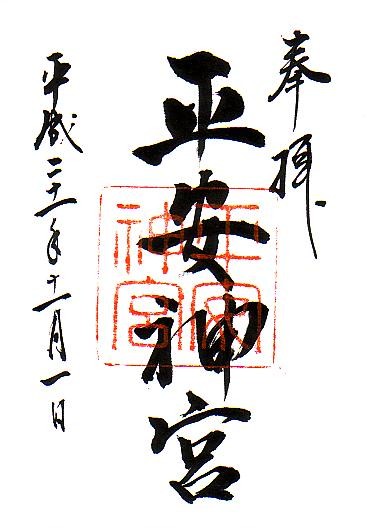 奉拝
平安神宮
平安神宮
平成二十一年十一月一日